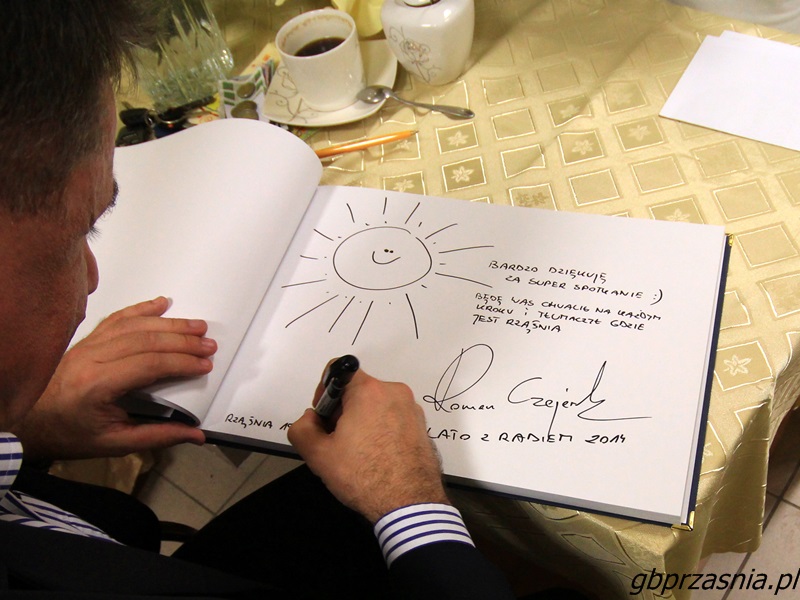 BARDZO DZIĘKUJĘ
ZA SUPER SPOTKANIE :)
BĘDĘ WAS CHWALIŁ NA KAŻDYM
KROKU I TŁUMACZYĆ GDZIE
JEST RZĄŚNIA
Roman Czejarek
LATO Z RADIEM 2014
RZĄŚNIA
gbprzasnia.pl